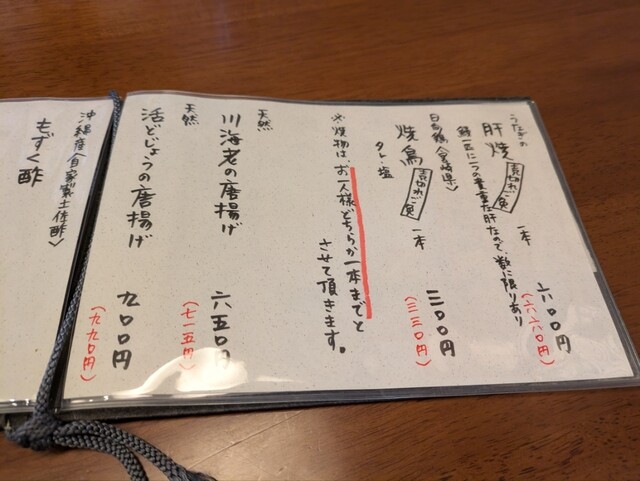 うなぎの
肝焼 売切れご免 一本 六〇〇円
(六六〇円)
鰻一匹に一つの貴重な肝なので、数に限りあり
日南鶏〈宮崎県〉
焼鳥 売切れご免 一本 三〇〇円
(三三〇円)
タレ・塩
※焼物はお一人様どちらか一本までと
させて頂きます。
天然
川海老の唐揚げ 六五〇円
(七一五円)
天然
活どじょうの唐揚げ 九〇〇円
(九九〇円)
沖縄産〈自家製土佐酢〉
もずく酢